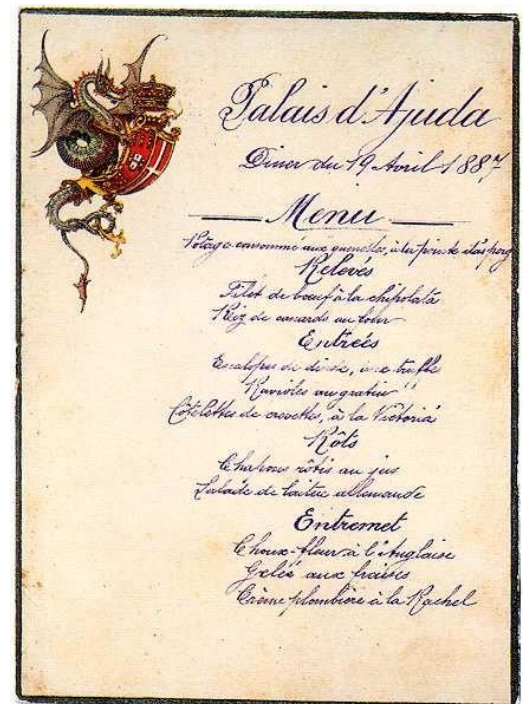 Palais d'Ajuda
Diner du 19 Avril 1887
Menu
Potage consommé aux quenelles, à la pointe d'asperg
Relevés
Filet de boeuf à la chipolata
Riz de canards au four
Entrées
Escalopes de dinde, aux truffes
Ravioles au gratin
Côtelettes de crevettes, à la Victoria
Rôts
Chapons rôtis au jus
Salade de laitue allemande
Entremet
Choux-fleur à l'Anglaise
Gelée aux fraises
Crème plombière à la Rachel